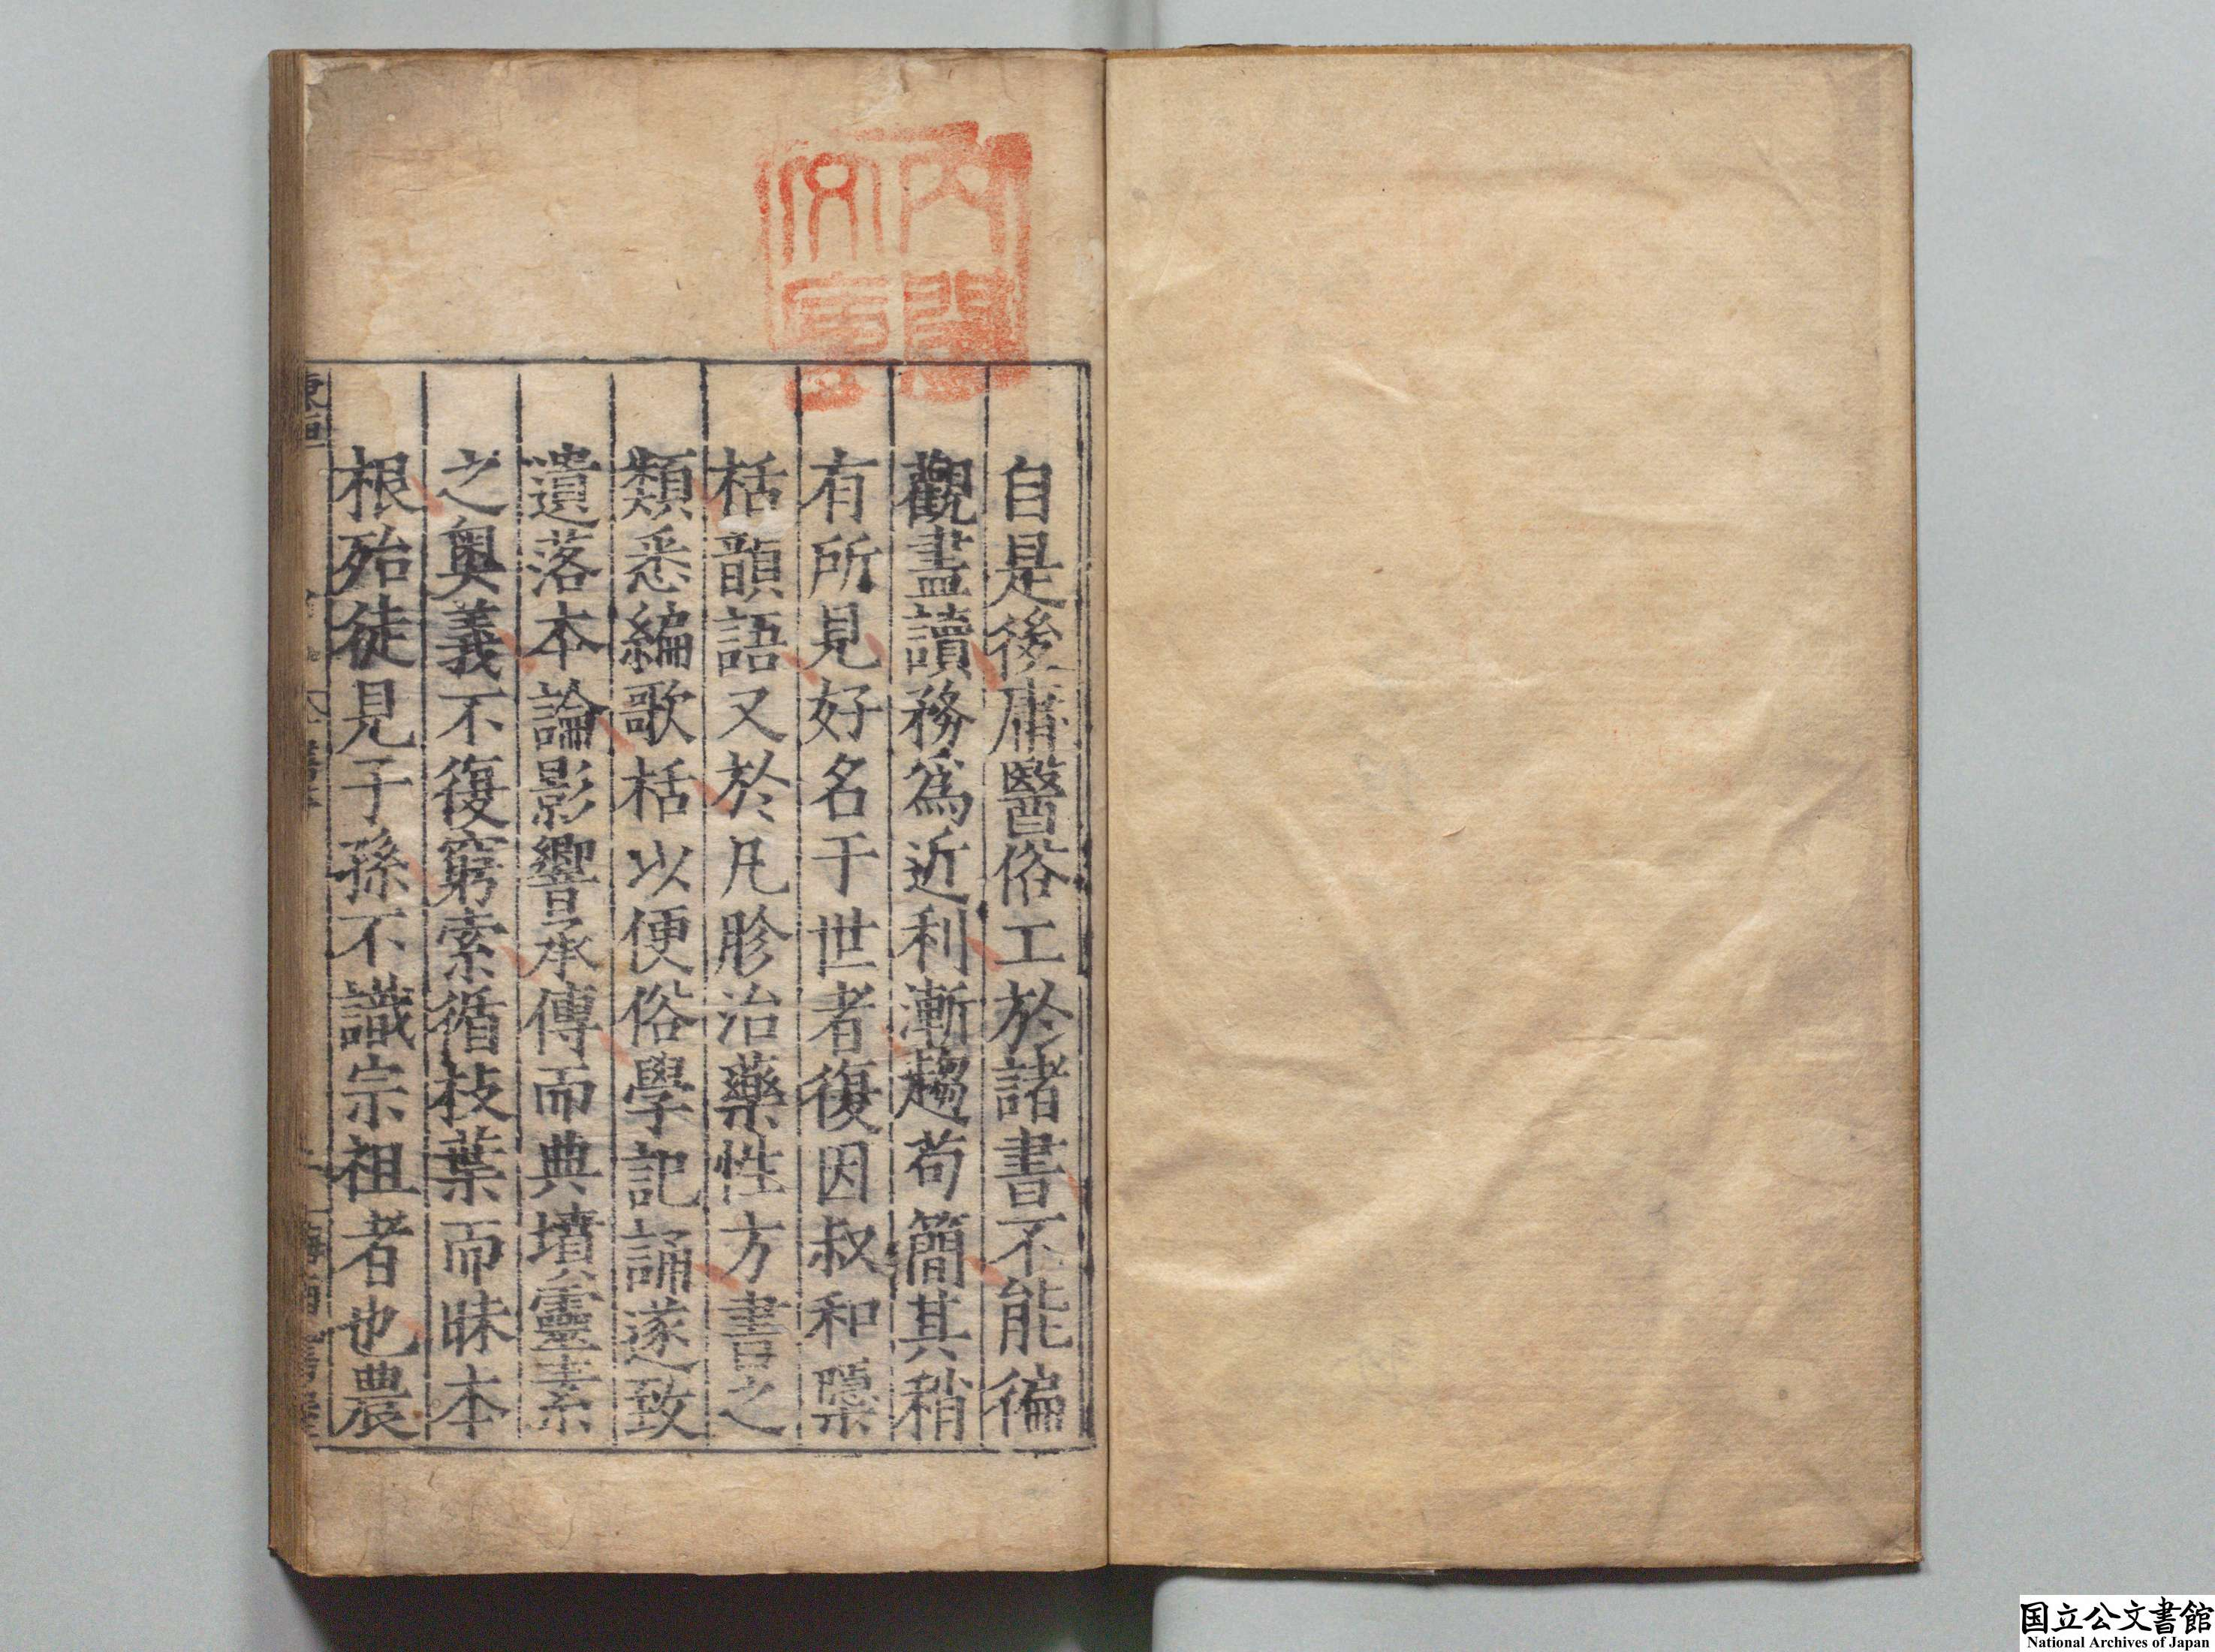 内閣
文庫
自是後庸醫俗工於諸書不能徧
觀盡讀務爲近利漸趨苟簡其稍
有所見好名于世者復因叔和檃
栝韻語又於凡胗治藥性方書之
類悉編歌栝以便俗學記誦遂致
遺落本論影響承傳而典墳靈素
之奥義不復窮索循枝葉而昧本
根殆徒見子孫不識宗祖者也農
東垣
国立公文書館
National Archives of Japan